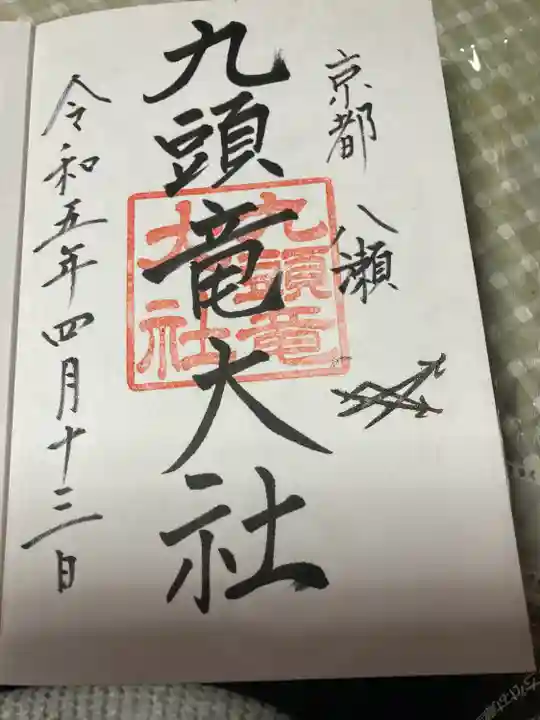 京都 八瀬
九頭竜大社
九頭竜
大社
令和五年四月十三日